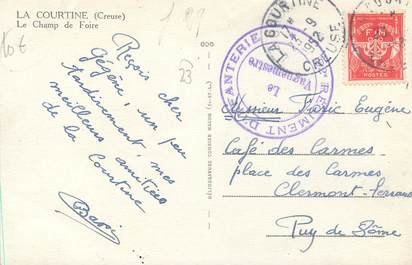 LA COURTINE (Creuse)
Le Champ de Foire
Reçois cher
Gégène, un peu
tardivement, mes
meilleures amitiés
de la Courtine
LA COURTINE
CREUSE
REGIMENT D'INFANTERIE
Le
Vaguemestre
F M
POSTES
Monsieur Faric Eugène
Café des Carmes
place des Carmes
Clermont-Ferrand
Puy de Dôme